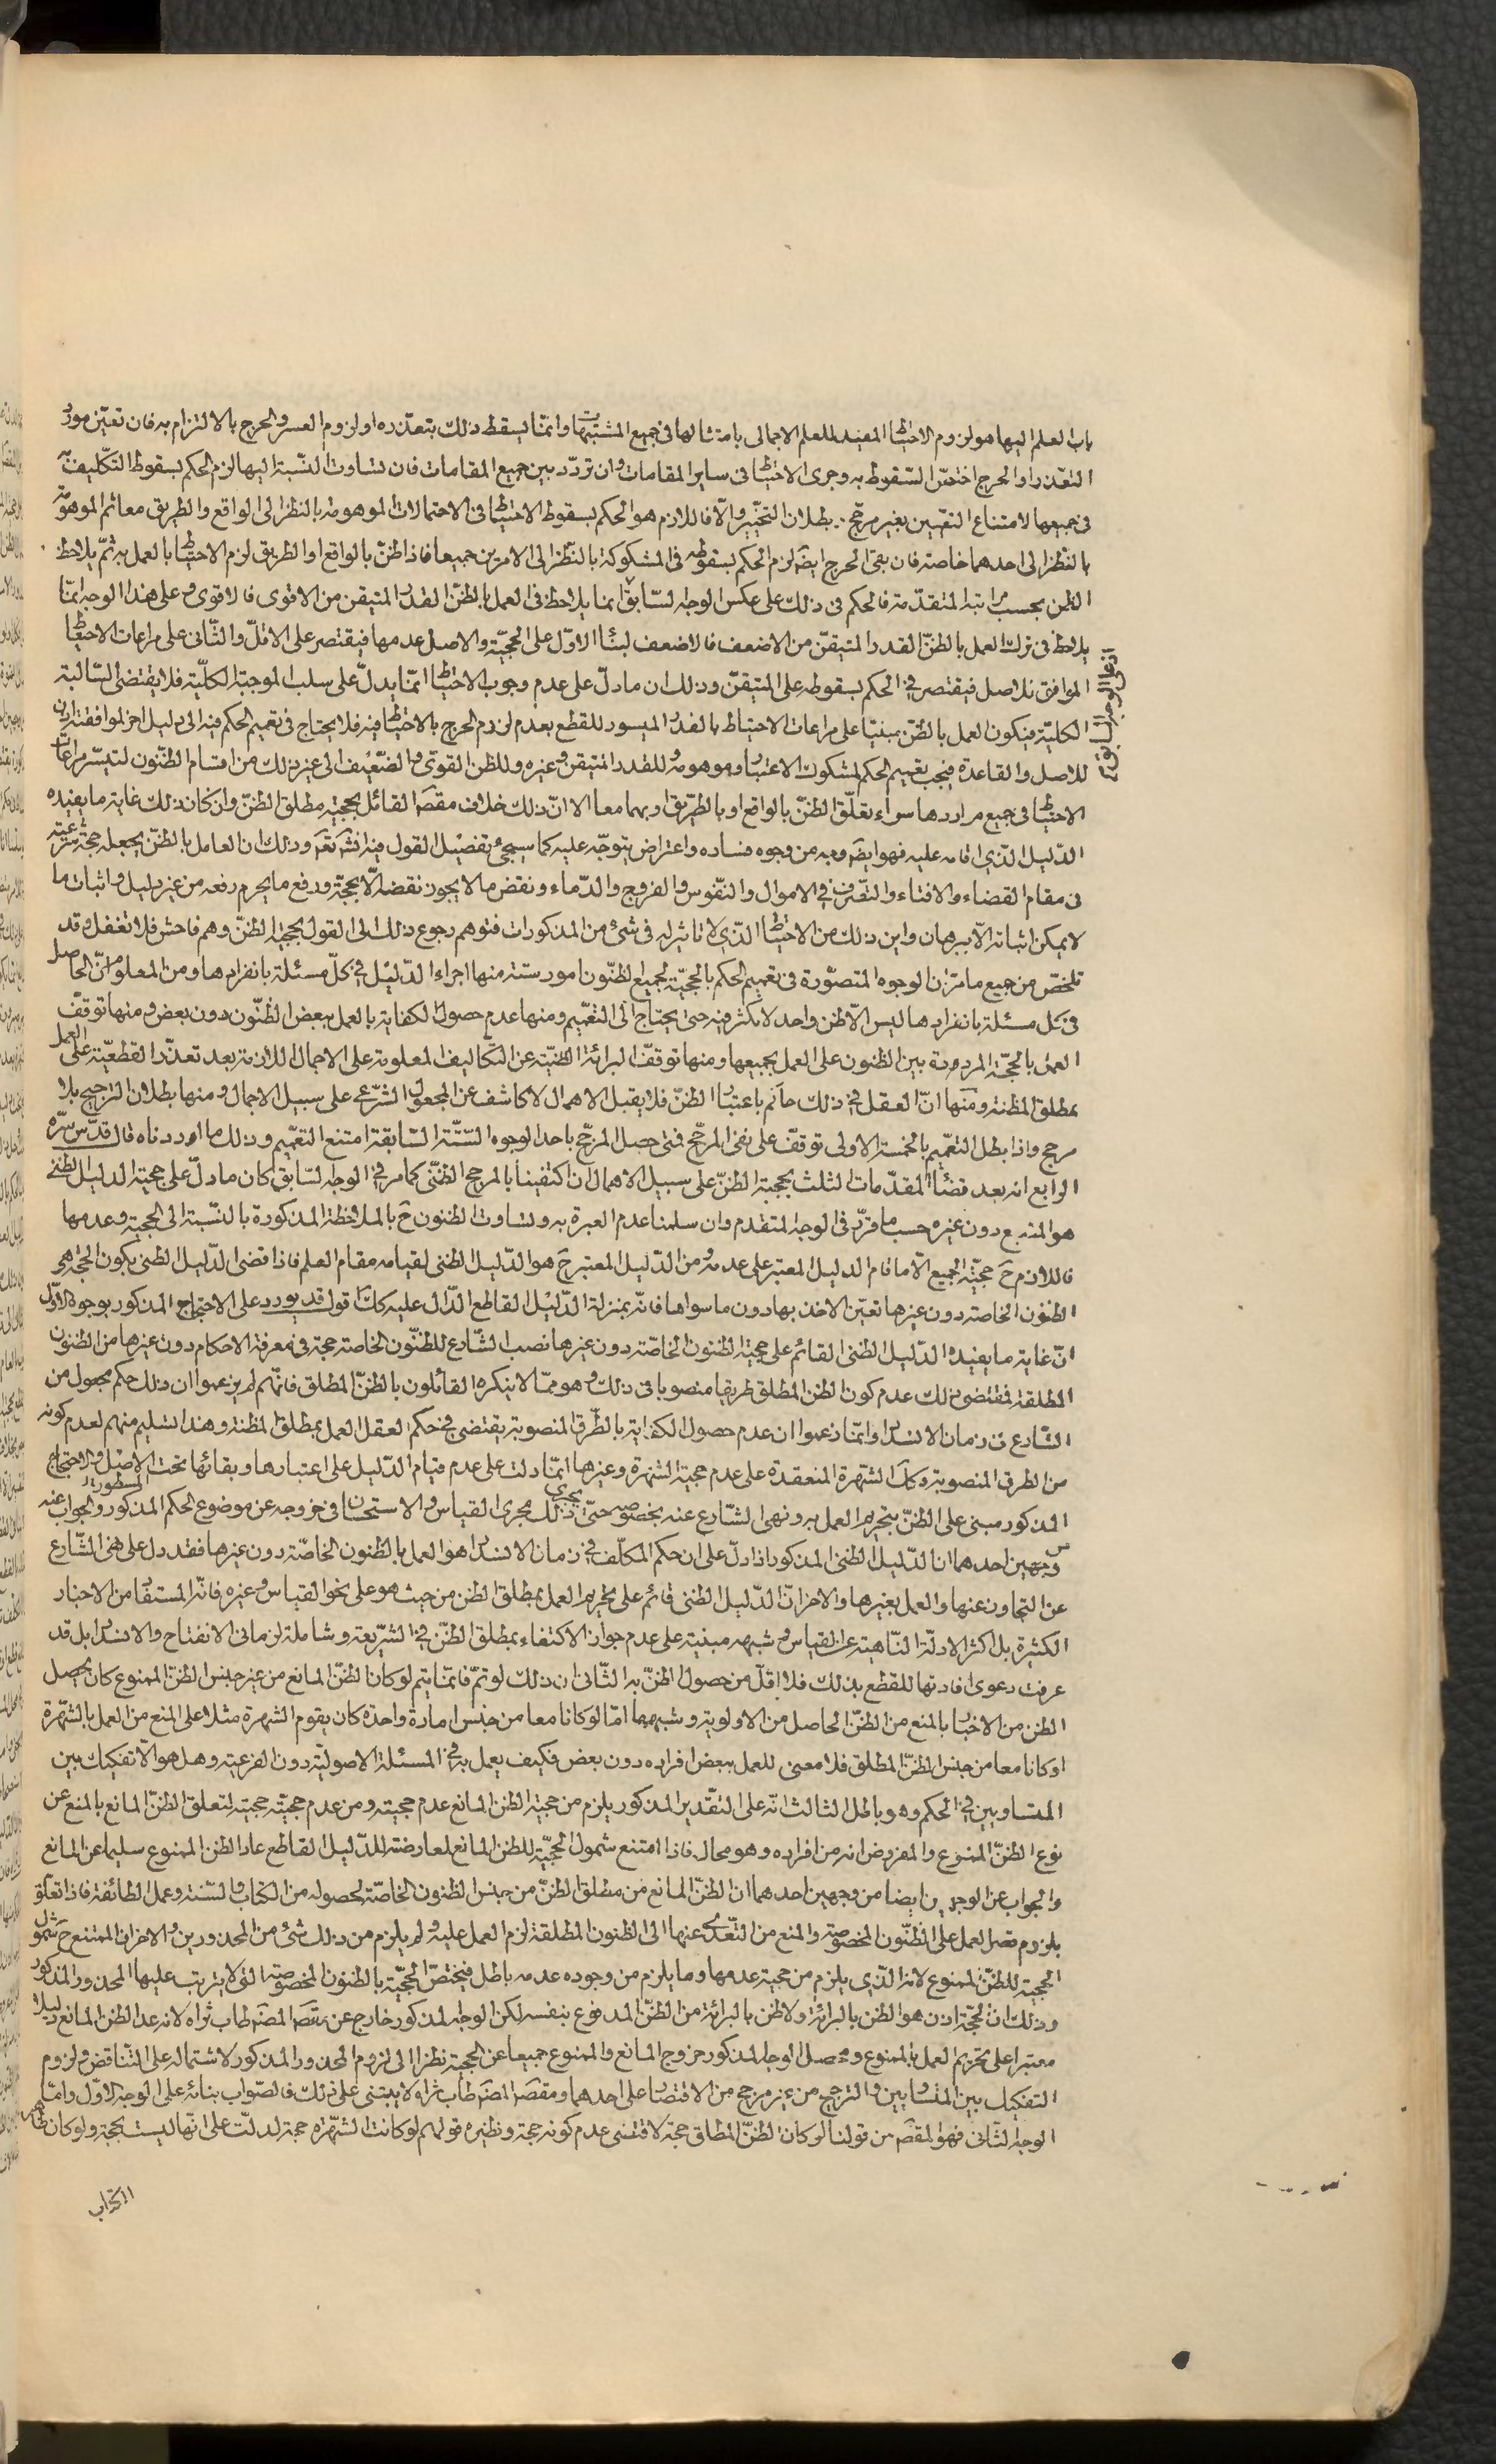 باب العلم اليها هو لزوم الاحتياط المفيد للعلم الاجمالى بامتثالها فى جميع المشتبهات وانما يسقط ذلك بتعذره او لزوم العسر والحرج بالالتزام به فان تعين مورد
التعذر او الحرج اختص السقوط به وجرى الاحتياط فى ساير المقامات وان تردد بين جميع المقامات فان تساوت النسبة اليها لزم الحكم بسقوط التكليف به
فى جميعها لامتناع التعيين بغير مرجح وبطلان التخيير والا فاللازم هو الحكم بسقوط الاحتياط فى الاحتمالات الموهومة بالنظر الى الواقع والطريق معا ثم الموهومة
بالنظر الى احدهما خاصة فان بقى الحرج ايضا لزم الحكم بسقوطه فى المشكوكة بالنظر الى الامرين جميعا فاذا ظن بالواقع او الطريق لزم الاحتياط بالعمل به ثم يلاحظ
الظن بحسب مراتبه المتقدمة فالحكم فى ذلك على عكس الوجه السابق انما يلاحظ فى العمل بالظن القدر المتيقن من الاقوى فالاقوى وعلى هذا الوجه انما
يلاحظ فى ترك العمل بالظن القدر المتيقن من الاضعف فالاضعف لبناء الاول على الحجية والاصل عدمها فيقتصر على الاقل والثانى على مراعات الاحتياط
الموافق للاصل فيقتصر فى الحكم بسقوطه على المتيقن وذلك ان ما دل على عدم وجوب الاحتياط انما يدل على سلب الموجبة الكلية فلا يقتضى السالبة
الكلية فيكون العمل بالظن مبنيا على مراعات الاحتياط بالقدر الميسور للقطع بعدم لزوم الحرج بالاحتياط فيه فلا يحتاج فى تعميم الحكم فيه الى دليل اخر لموافقته اذن
للاصل والقاعدة فيجب تعميم الحكم لمشكوك الاعتبار وموهومه وللقدر المتيقن وغيره وللظن القوى والضعيف الى غير ذلك من اقسام الظنون لتيسر مراعات
الاحتياط فى جميع مواردها سواء تعلق الظن بالواقع او بالطريق او بهما معا الا ان ذلك خلاف مقصد القائل بحجية مطلق الظن وان كان ذلك غاية ما يفيده
الدليل الذى اقامه عليه فهو ايضا وجه من وجوه فساده واعتراض يتوجه عليه كما سيجئ تفصيل القول فيه انشَ تعَ وذلك ان العامل بالظن يجعله حجة شرعية
فى مقام القضاء والافتاء والتصرف فى الاموال والنفوس والفروج والدماء ونقض ما لا يجوز نقضه الا بحجة ورفع ما يحرم رفعه من غير دليل واثبات ما
لا يمكن اثباته الا ببرهان واين ذلك من الاحتياط الذى لا تاثير له فى شئ من المذكورات فتوهم رجوع ذلك الى القول بحجية الظن وهم فاحش فلا تغفل وقد
تلخص من جميع ما مر ان الوجوه المتصورة فى تعميم الحكم بالحجية لجميع الظنون امور ستة منها اجراء الدليل فى كل مسئلة بانفرادها ومن المعلوم ان الحاصل
فى كل مسئلة بانفرادها ليس الا ظن واحد لا تكثر فيه حتى يحتاج الى التعميم ومنها عدم حصول الكفاية بالعمل ببعض الظنون دون بعض ومنها توقف
العمل بالحجة المرددة بين الظنون على العمل بجميعها ومنها توقف البرائة الظنية عن التكاليف المعلومة على الاجمال اللازمة بعد تعذر القطعية على العمل
بمطلق المظنة ومنها ان العقل فى ذلك حاكم باعتبار الظن فلا يقبل الاهمال لا كاشف عن المجعول الشرعى على سبيل الاجمال ومنها بطلان الترجيح بلا
مرجح واذا بطل التعميم بالخمسة الاولى توقف على نفى المرجح فمتى حصل المرجح باحد الوجوه الستة السابقة امتنع التعميم وذلك ما اوردناه قال قدس سره
الرابع انه بعد قضاء المقدمات الثلث بحجية الظن على سبيل الاهمال ان اكتفينا بالمرجح الظنى كما مر فى الوجه السابق كان ما دل على حجية الدليل الظنى
هو المتبع دون غيره حسب ما قرر فى الوجه المتقدم وان سلمنا عدم العبرة به وتساوت الظنون حَ بالملاحظة المذكورة بالنسبة الى الحجية وعدمها
فاللازم حَ حجية الجميع الا ما قام الدليل المعتبر على عدمه ومن الدليل المعتبر حَ هو الدليل الظنى لقيامه مقام العلم فاذا قضى الدليل الظنى بكون الحجة هى
الظنون الخاصة دون غيرها تعين الاخذ بها دون ما سواها فانه بمنزلة الدليل القاطع الدال عليه كذلك قوله قد يورد على الاحتجاج المذكور بوجوه الاول
ان غاية ما يفيده الدليل الظنى القائم على حجية الظنون الخاصة دون غيرها نصب الشارع للظنون الخاصة حجة فى معرفة الاحكام دون غيرها من الظنون
المطلقة فمقتضى ذلك عدم كون الظن المطلق طريقا منصوبا فى ذلك وهو مما لا ينكره القائلون بالظن المطلق فانهم لم يزعموا ان ذلك حكم مجعول من
الشارع فى زمان الانسداد وانما زعموا ان عدم حصول الكفاية بالطرق المنصوبة يقتضى فى حكم العقل العمل بمطلق المظنة وهذا تسليم منهم لعدم كونه
من الطرق المنصوبة وكذا الشهرة المنعقدة على عدم حجية الشهرة وغيرها انما دلت على عدم قيام الدليل على اعتبارها وبقائها تحت الاصل والاحتجاج المسطور
المذكور مبنى على الظن بتحريم العمل به ونهى الشارع عنه بخصوصه حتى يجرى ذلك مجرى القياس والاستحسان فى خروجه عن موضوع الحكم المذكور والجواب عنه
من وجهين احدهما ان الدليل الظنى المذكور اذا دل على ان حكم المكلف فى زمان الانسداد هو العمل بالظنون الخاصة دون غيرها فقد دل على نهى الشارع
عن التجاوز عنها والعمل بغيرها والاخر ان الدليل الظنى قائم على تحريم العمل بمطلق الظن من حيث هو على نحو القياس وغيره فانه المستفاد من الاخبار
الكثيرة بل اكثر الادلة الناهية عن القياس وشبهه مبنية على عدم جواز الاكتفاء بمطلق الظن فى الشريعة وشاملة لزمانى الانفتاح والانسداد بل قد
عرفت دعوى افادتها للقطع بذلك فلا اقل من حصول الظن به الثانى ان ذلك لو تم فانما يتم لو كان الظن المانع من غير جنس الظن الممنوع كان يحصل
الظن من الاخبار بالمنع من الظن الحاصل من الاولوية وشبهها اما لو كانا معا من جنس امارة واحدة كان يقوم الشهرة مثلا على المنع من العمل بالشهرة
او كانا معا من جنس الظن المطلق فلا معنى للعمل ببعض افراده دون بعض فكيف يعمل به فى المسئلة الاصولية دون الفرعية وهل هو الا تفكيك بين
المتساويين فى الحكم وهو باطل الثالث انه على التقدير المذكور يلزم من حجية الظن المانع عدم حجيته ومن عدم حجيته حجيته لتعلق الظن المانع بالمنع عن
نوع الظن الممنوع والمفروض انه من افراده وهو محال فاذا امتنع شمول الحجية للظن المانع لمعارضته للدليل القاطع عاد الظن الممنوع سليما عن المانع
والجواب عن الوجهين ايضا من وجهين احدهما ان الظن المانع من مطلق الظن من جنس الظنون الخاصة لحصوله من الكتاب والسنة وعمل الطائفة فاذا تعلق
بلزوم قصر العمل على الظنون المخصوصة والمنع من التعدى عنها الى الظنون المطلقة لزم العمل عليه ولم يلزم من ذلك شئ من المحذورين والاخر ان الممتنع حَ شمول
الحجية للظن الممنوع لانه الذى يلزم من حجيته عدمها وما يلزم من وجوده عدمه باطل فيختص الحجية بالظنون المخصوصة التى لا يترتب عليها المحذور المذكور
وذلك ان الحجة اذن هو الظن بالبرائة ولا ظن بالبرائة من الظن المدفوع بنفسه لكن الوجه المذكور خارج عن مقصد المصَ طاب ثراه لانه عد الظن المانع دليلا
معتبرا على تحريم العمل بالممنوع ومحصل الوجه المذكور خروج المانع والممنوع جميعا عن الحجية نظرا الى لزوم المحذور المذكور لاشتماله على التناقض ولزوم
التفكيك بين المتساويين والترجيح من غير مرجح من الاقتصار على احدهما ومقصد المصَ طاب ثراه لا يبتنى على ذلك فالصواب بنائه على الوجه الاول واما
الوجه الثانى فهو المقصد من قولنا لو كان الظن المطلق حجة لاقتضى عدم كونه حجة ونظيره قولهم لو كانت الشهرة حجة لدلت على انها ليست بحجة ولو كان ظاهر
الكتاب